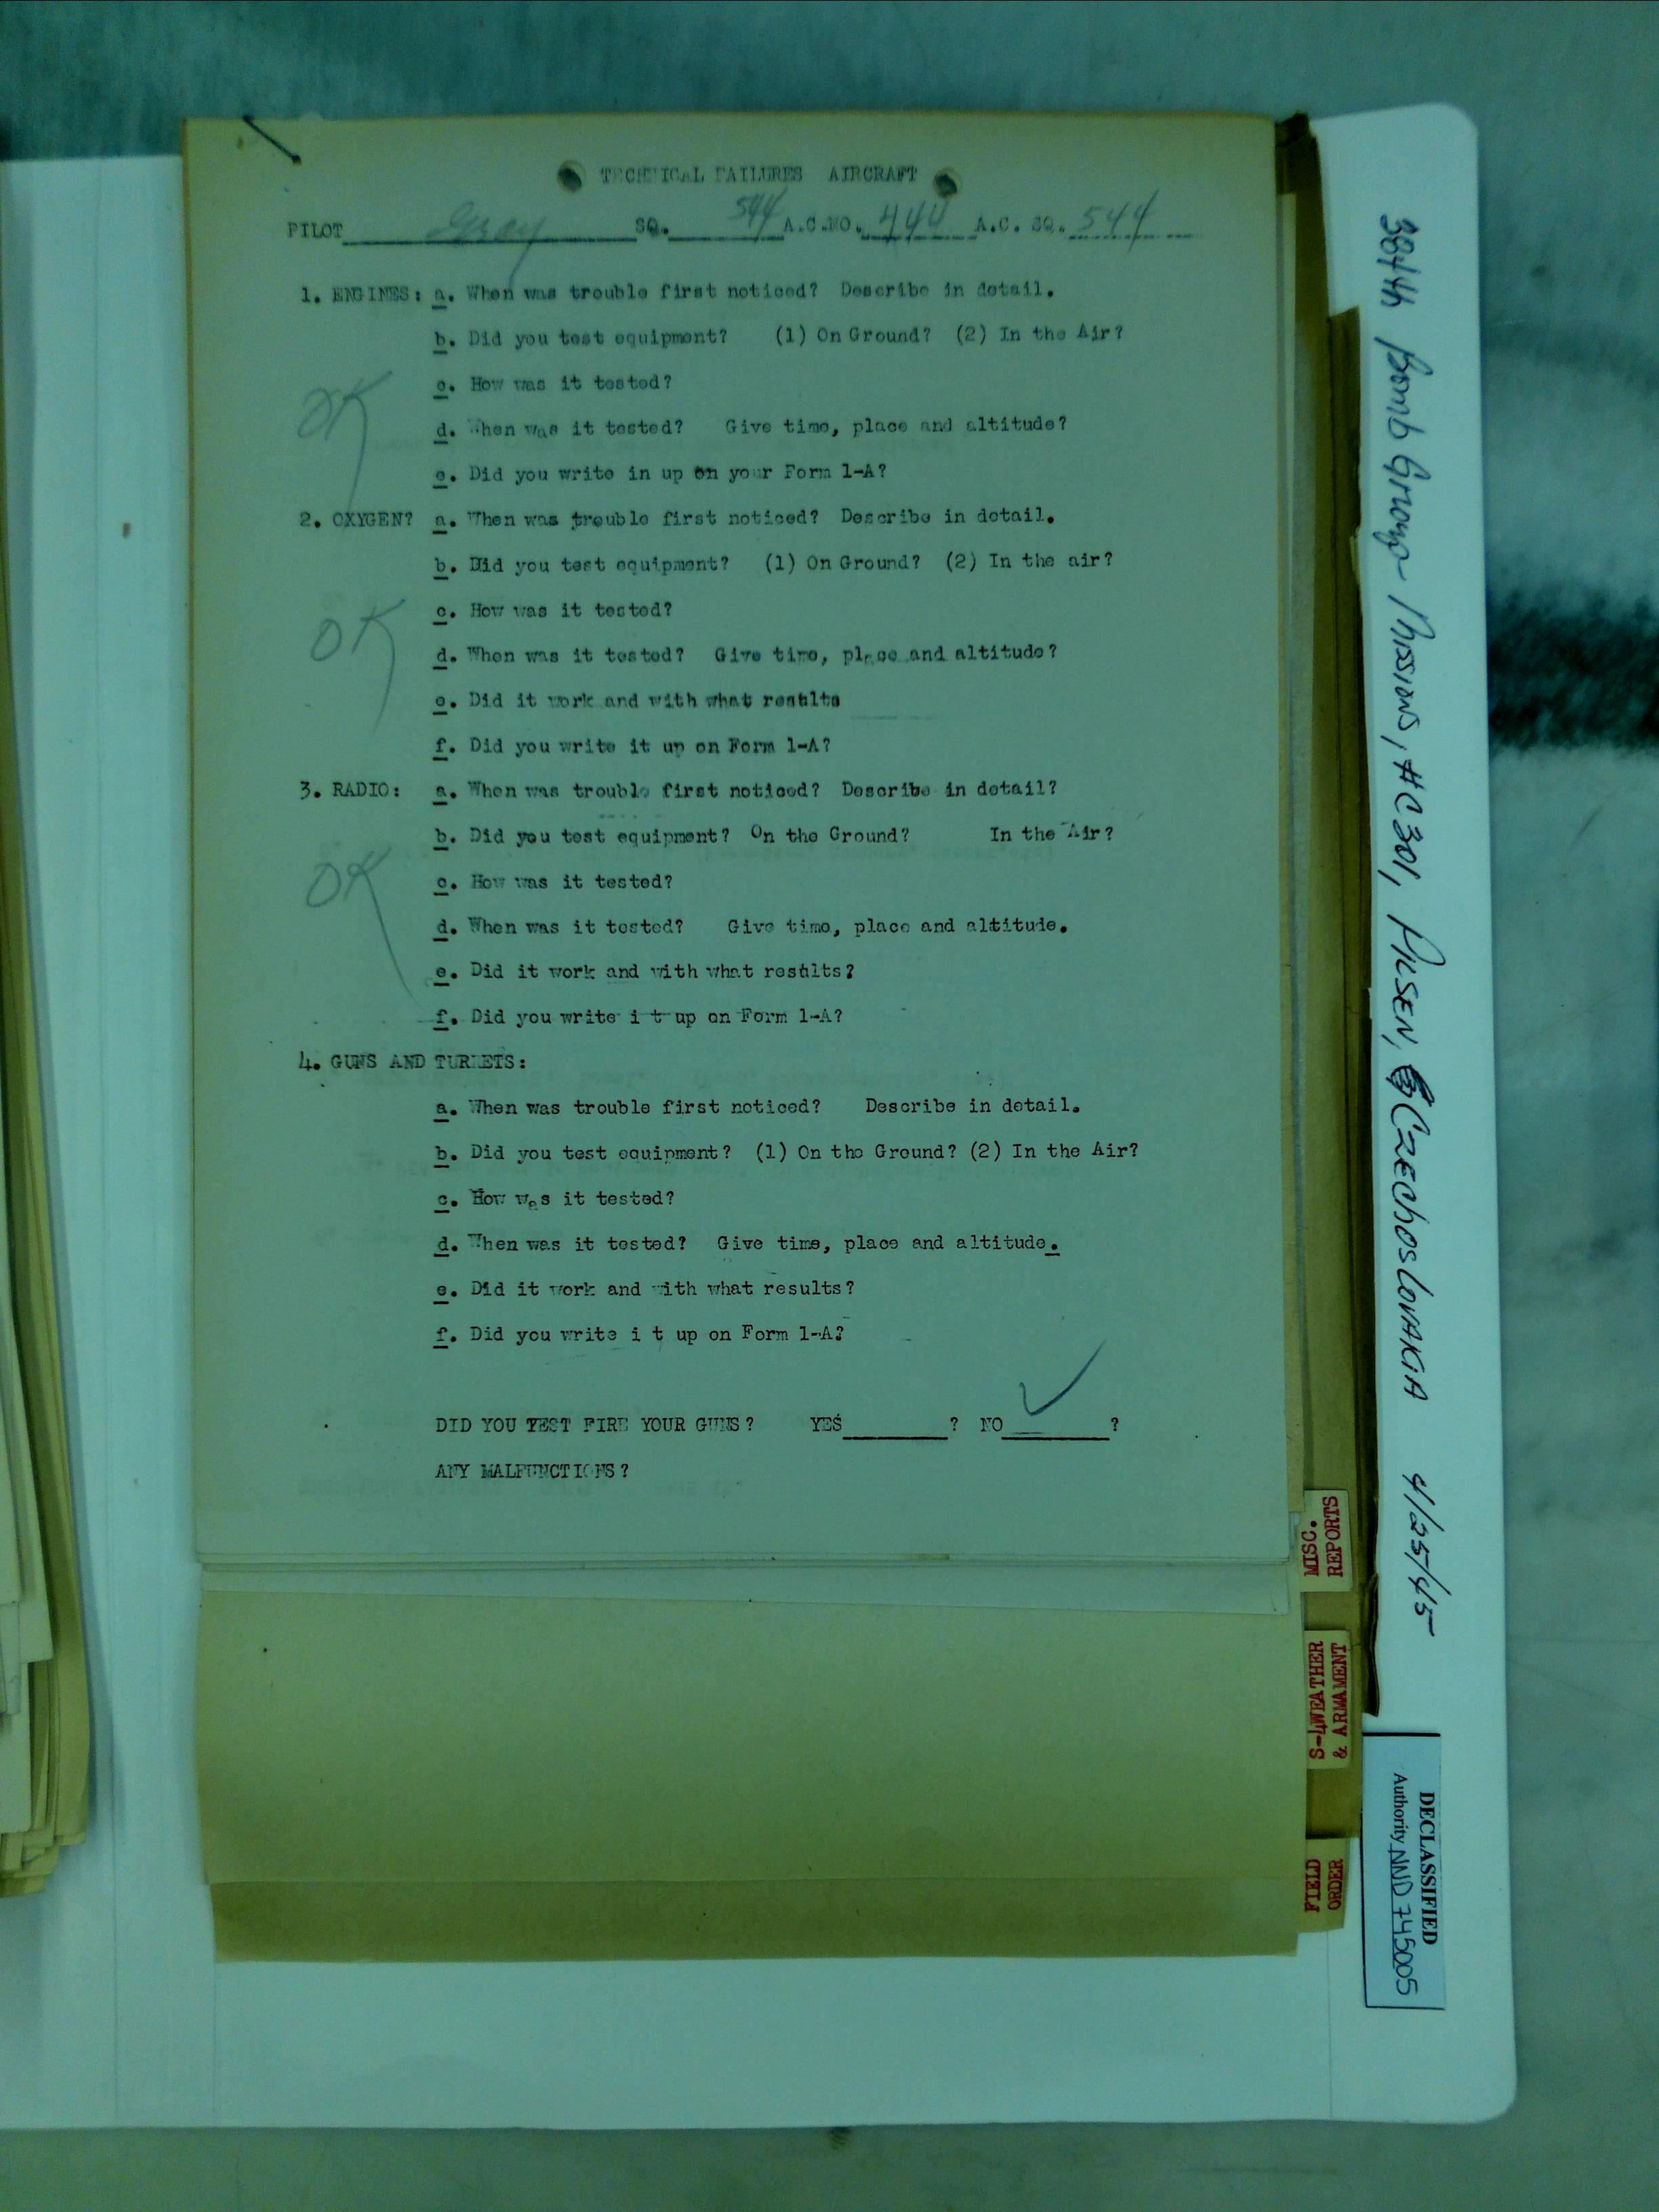 TECHNICAL FAILURES AIRCRAFT
PILOT Gray SQ. 544 A.C.NO. 444 A.C. SQ. 544
1. ENGINES: a. When was trouble first noticed? Describe in detail.
b. Did you test equipment? (1) On Ground? (2) In the Air?
c. How was it tested?
OK
d. When was it tested? Give time, place and altitude?
e. Did you write in up on your Form 1-A?
2. OXYGEN? a. When was trouble first noticed? Describe in detail.
b. Did you test equipment? (1) On Ground? (2) In the air?
c. How was it tested?
OK
d. When was it tested? Give time, place and altitude?
e. Did it work and with what results
f. Did you write it up on Form 1-A?
3. RADIO: a. When was trouble first noticed? Describe in detail?
b. Did you test equipment? On the Ground? In the Air?
OK
c. How was it tested?
d. When was it tested? Give time, place and altitude.
e. Did it work and with what results?
f. Did you write i t up on Form 1-A?
4. GUNS AND TURRETS:
a. When was trouble first noticed? Describe in detail.
b. Did you test equipment? (1) On the Ground? (2) In the Air?
c. How was it tested?
d. When was it tested? Give time, place and altitude.
e. Did it work and with what results?
f. Did you write i t up on Form 1-A?
DID YOU TEST FIRE YOUR GUNS? YES ? NO ✓ ?
ANY MALFUNCTIONS?
MISC.
REPORTS
S-4 WEATHER
& ARMAMENT
FIELD
ORDER
384th Bomb Group Missions, #C301, PILSEN, CZEChosLOVAKIA 4/25/45
DECLASSIFIED
Authority NND 745005